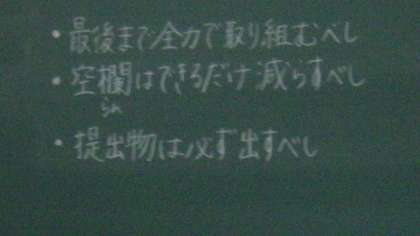 ・最後まで全力で取り組むべし
・空欄はできるだけ減らすべし
らん
・提出物は必ず出すべし